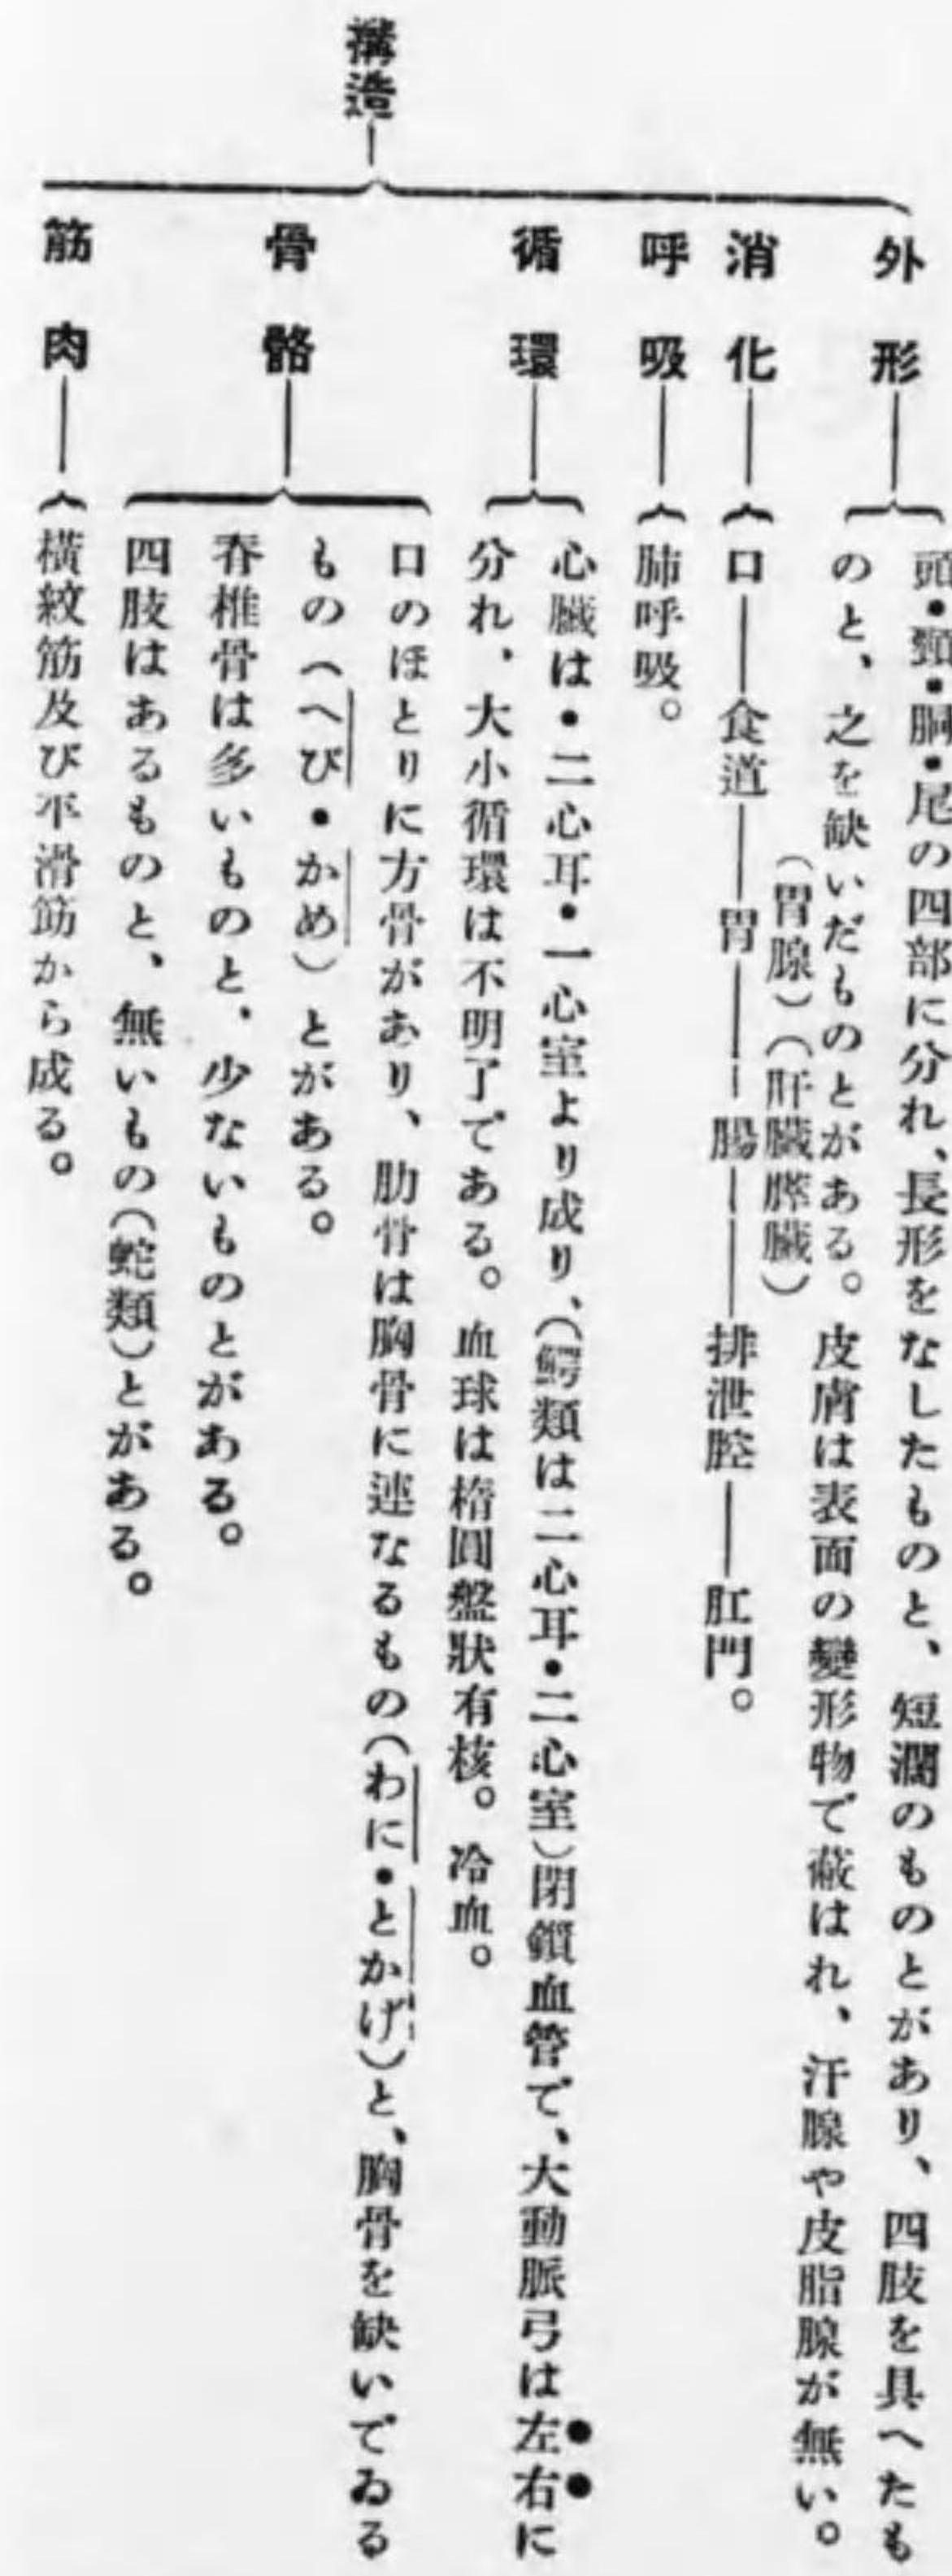 構造
外形
頭・頸・胴・尾の四部に分れ、長形をなしたものと、短濶のものとがあり、四肢を具へたも
のと、之を缺いだものとがある。皮膚は表面の變形物で蔽はれ、汗腺や皮脂腺が無い。
消化
(胃腺)(肝臟膵臟)
口――食道――胃――腸――排泄腔――肛門。
呼吸
肺呼吸。
循環
心臟は・二心耳・一心室より成り、(鰐類は二心耳・二心室)閉鎖血管で、大動脈弓は左右に
分れ、大小循環は不明了である。血球は楕圓盤狀有核。冷血。
骨骼
口のほとりに方骨があり、肋骨は胸骨に連なるもの(わに・とかげ)と、胸骨を缺いでゐる
もの(へび・かめ)とがある。
脊椎骨は多いものと、少ないものとがある。
四肢はあるものと、無いもの(蛇類)とがある。
筋肉
橫紋筋及び平滑筋から成る。